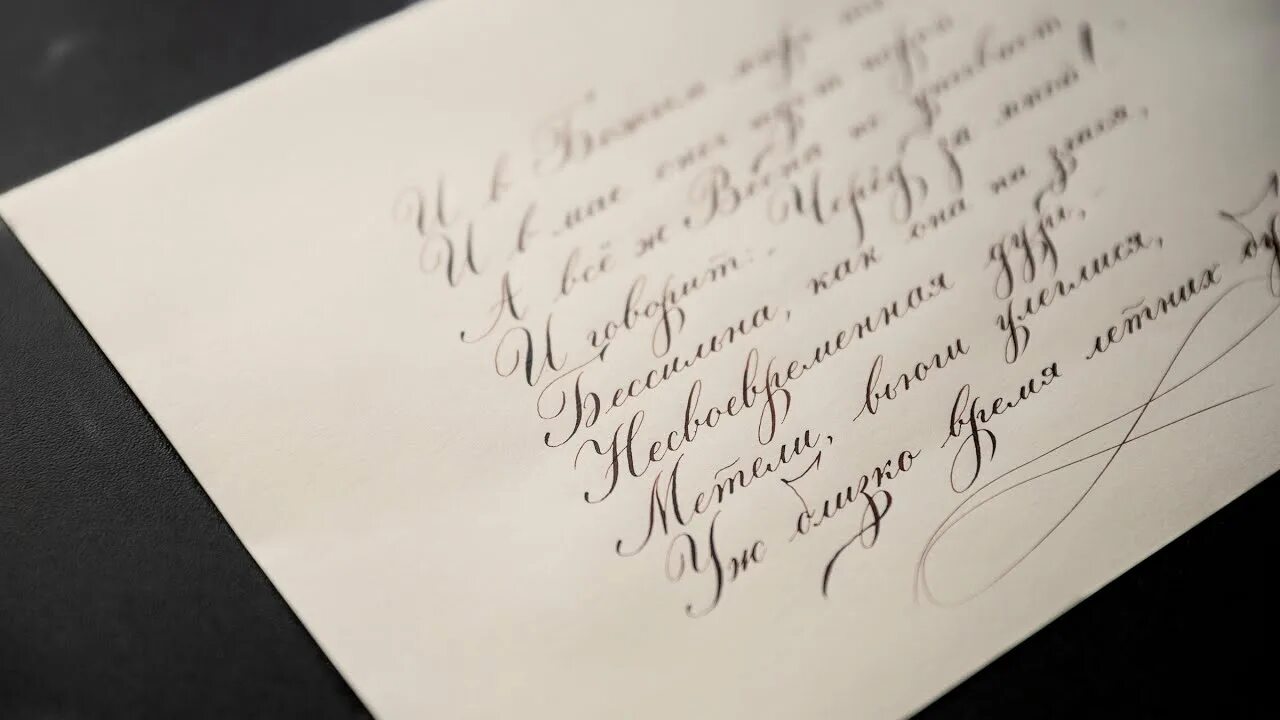 И в Божьем мире
И в мае снег идёт порой
А всё ж Весна не унывает
И говорит: Черёд за мной!
Бессильна, как она ни злися,
Несвоевременная дурь,
Метели, вьюги улеглися,
Уж близко время летних бу